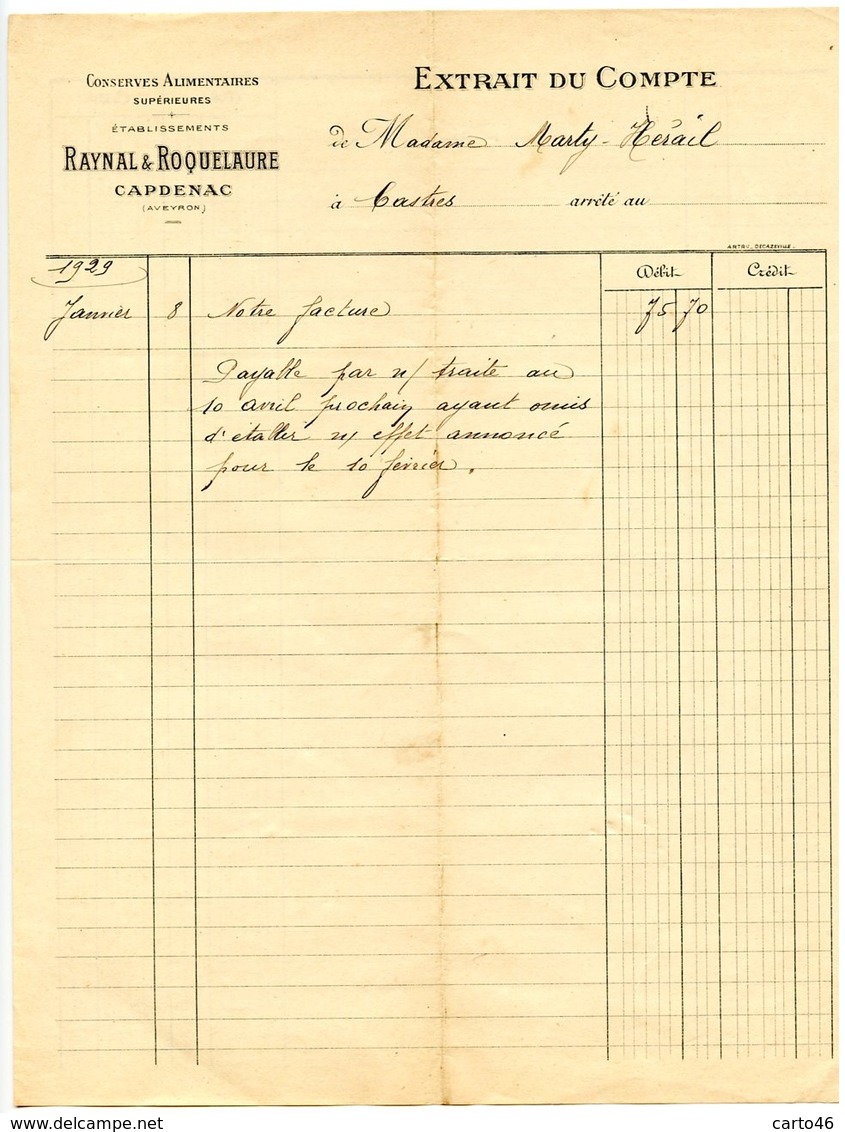 CONSERVES ALIMENTAIRES
SUPÉRIEURES
ÉTABLISSEMENTS
RAYNAL & ROQUELAURE
CAPDENAC
(AVEYRON)
EXTRAIT DU COMPTE
de Madame Marty-Hérail
à Castres arrêté au
ARTRU, DECAZEVILLE.
1929 Débit Crédit
Janvier 8 Notre facture 75 70
Payable par n/ traite au
10 avril prochain ayant omis
d'etablir n/ effet annoncé
pour le 10 février.
delcampe.net
carto46